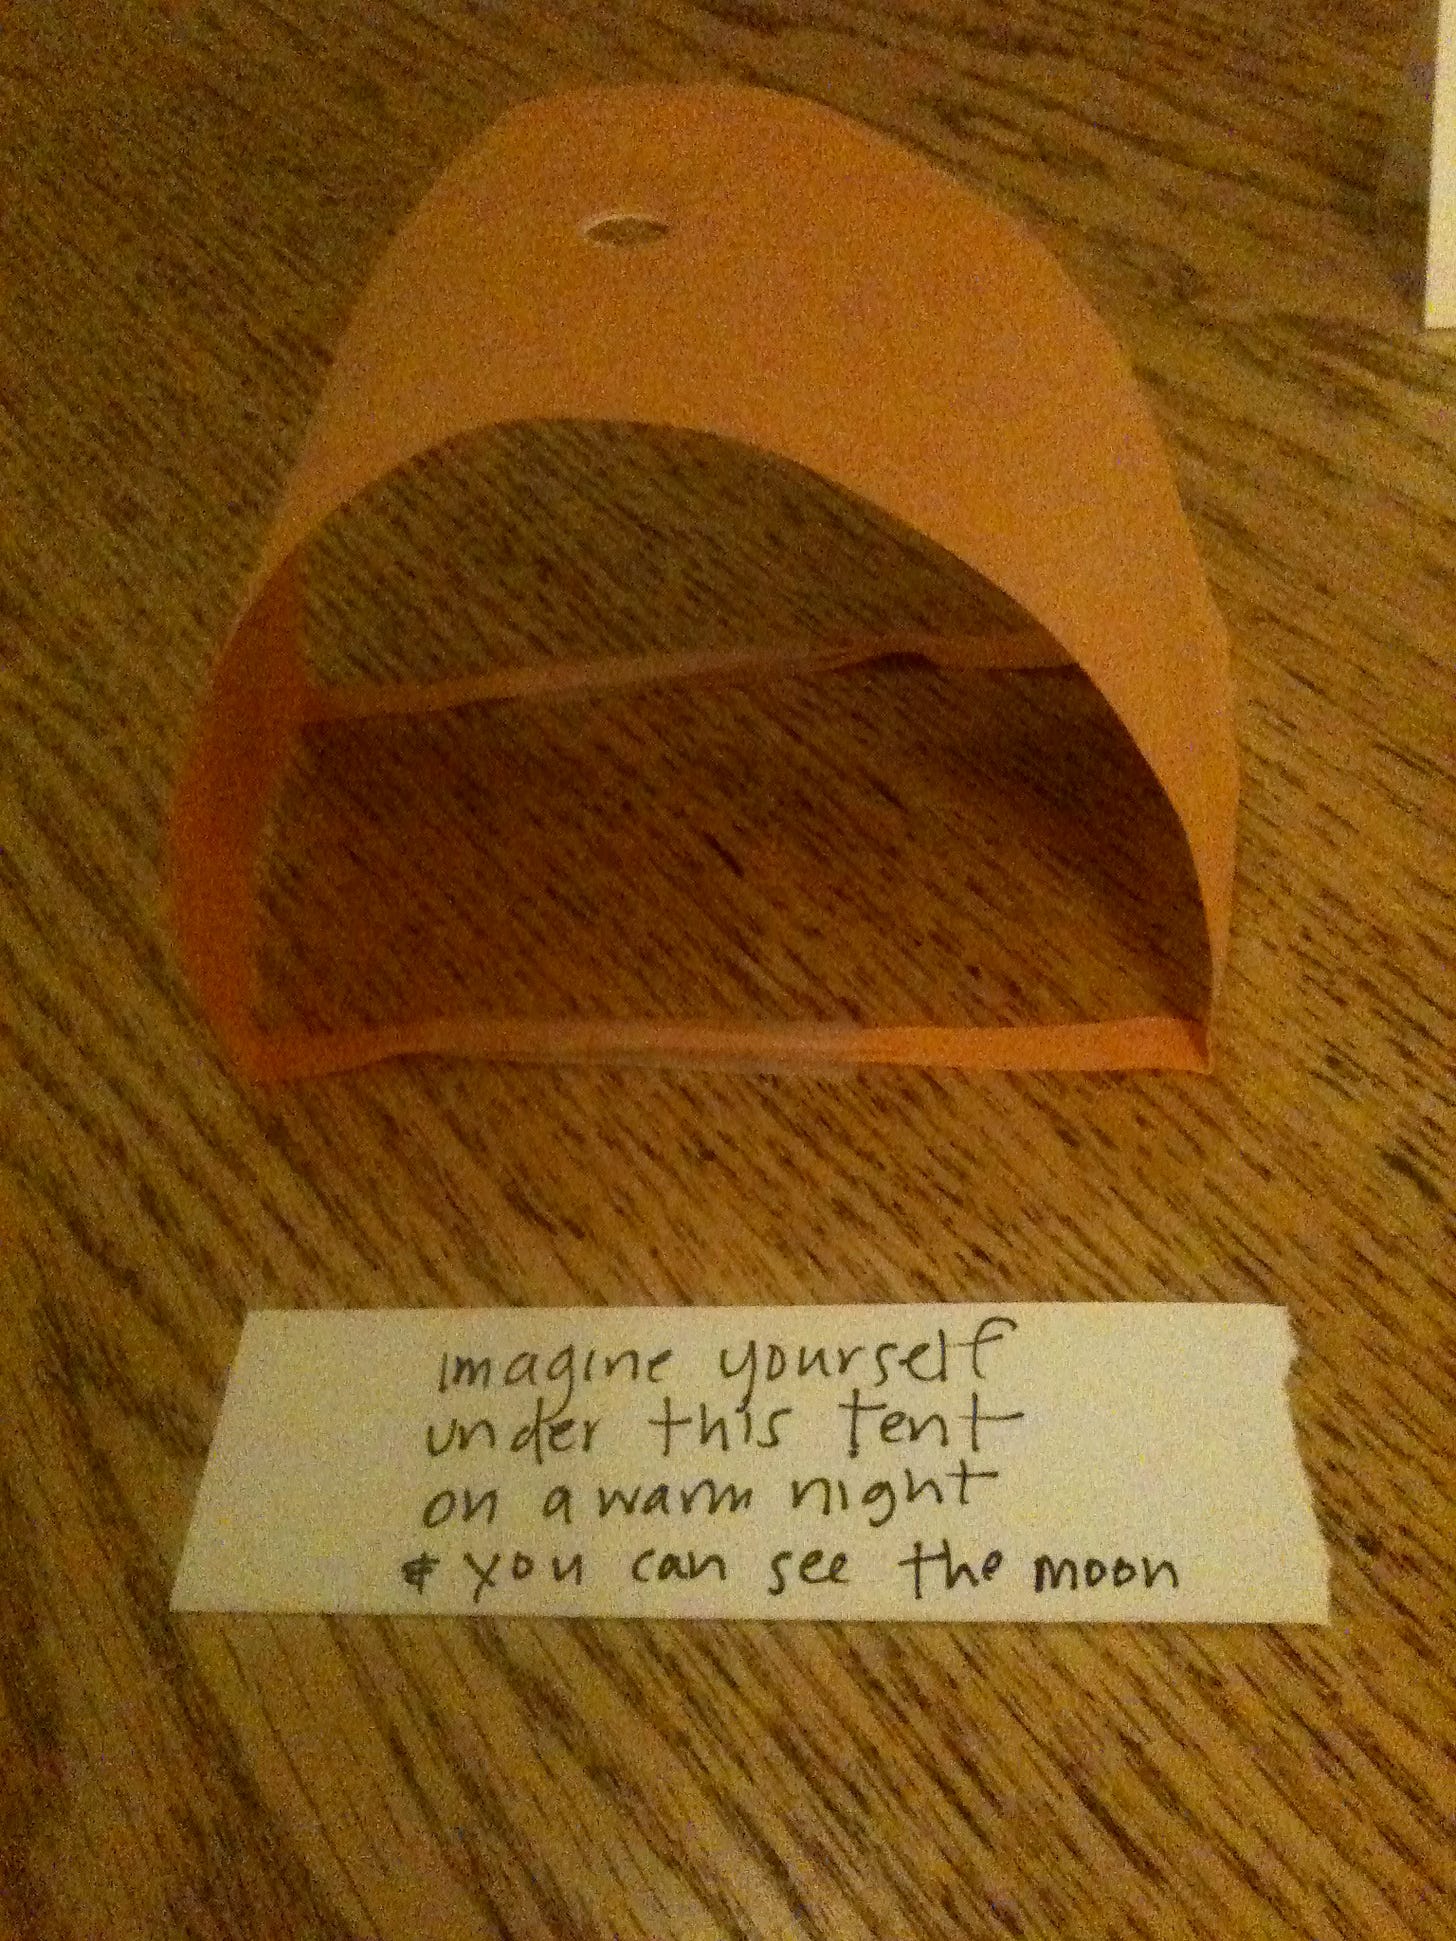 imagine yourself
under this tent
on a warm night
& you can see the moon